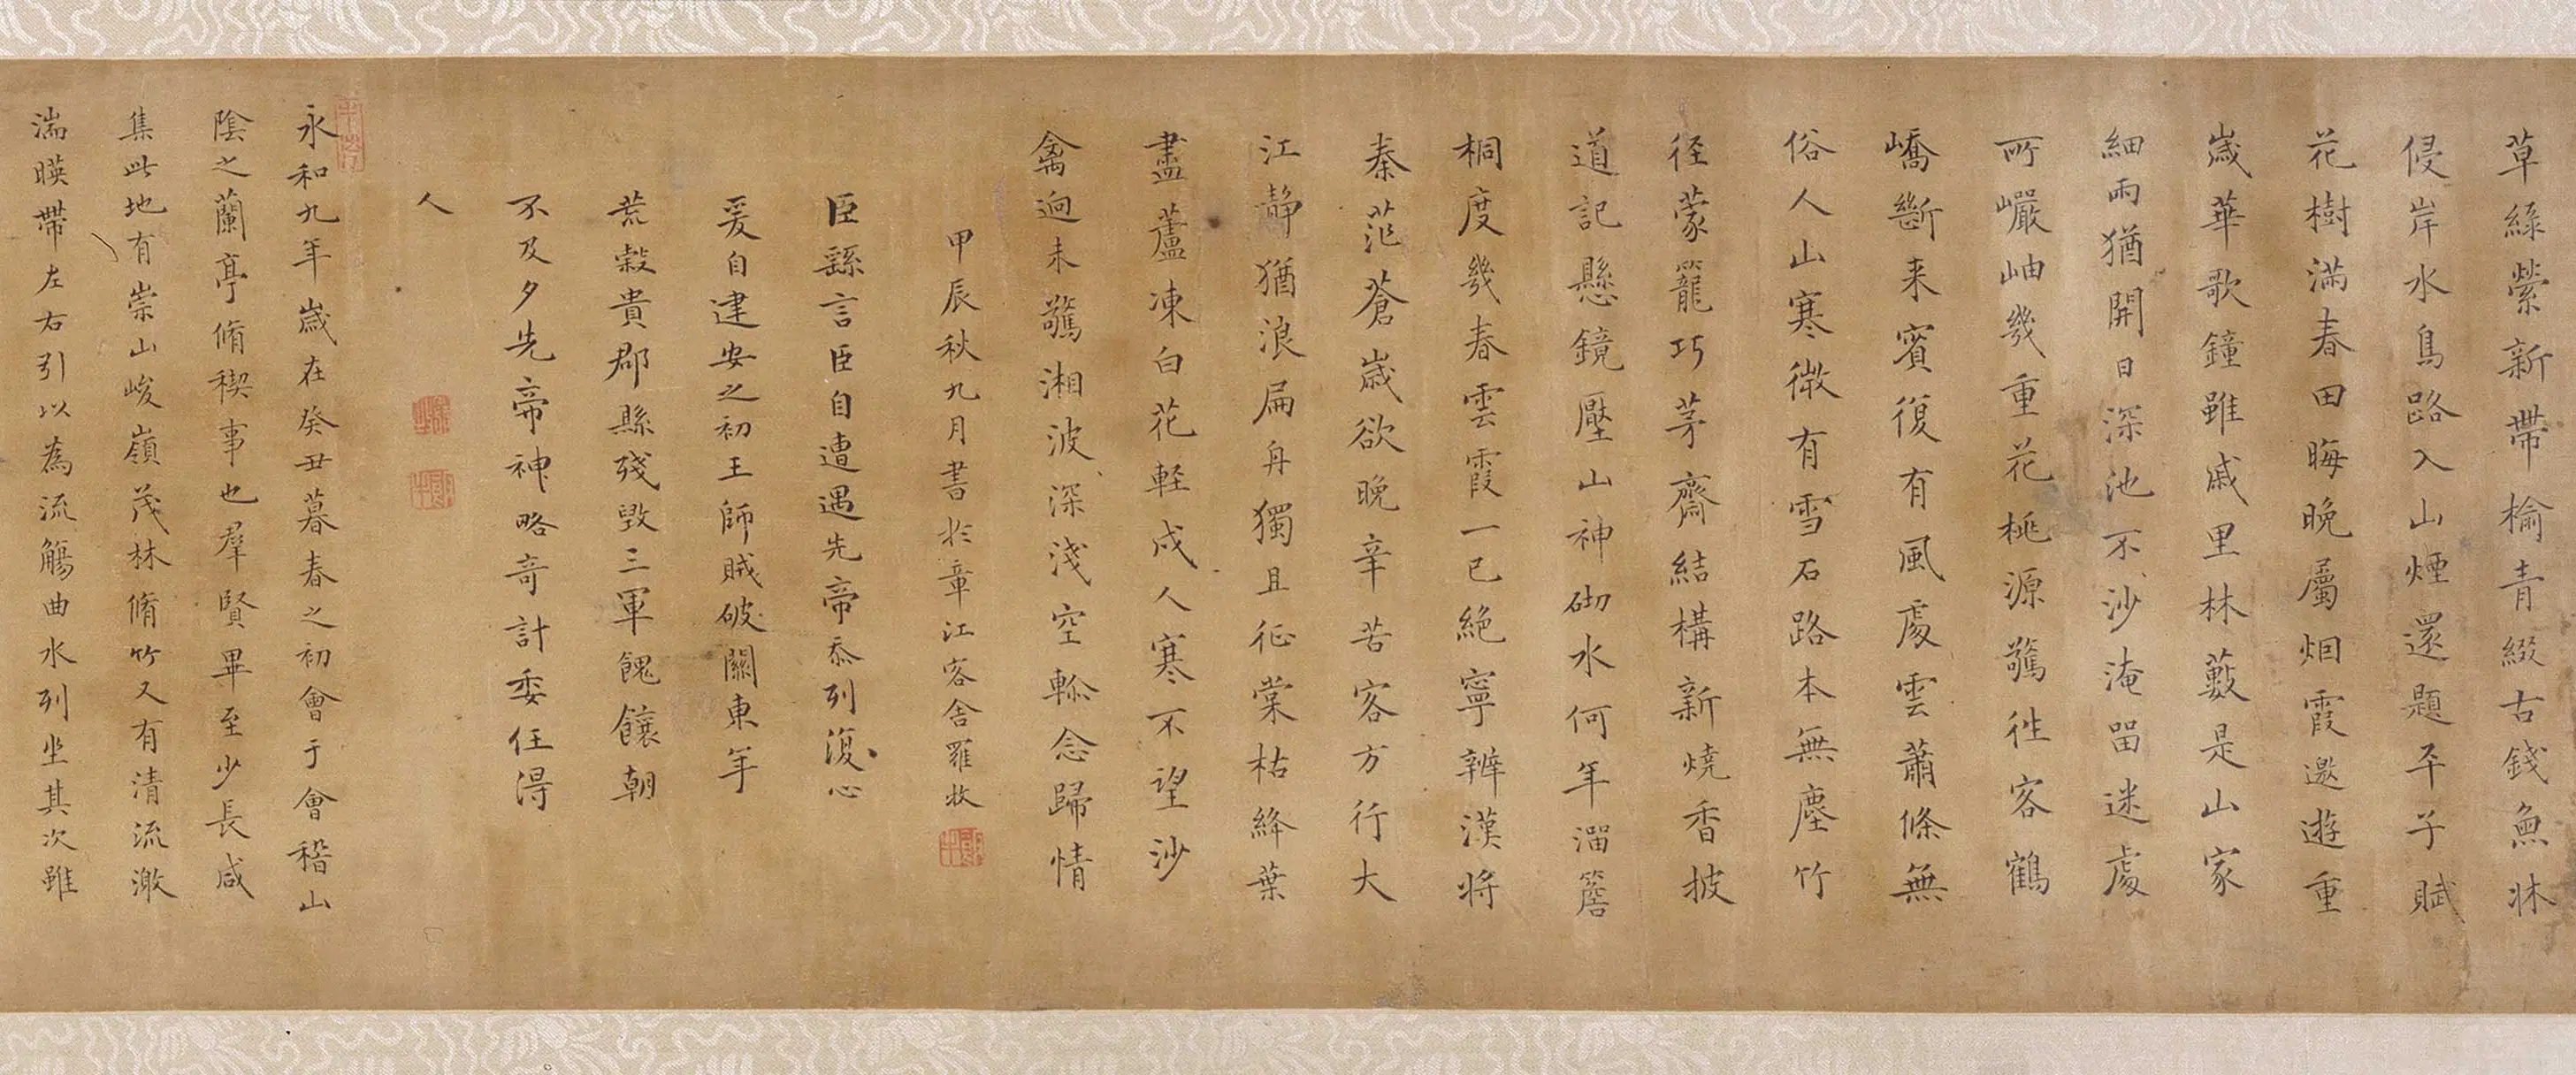 草綠縈新帶榆青綴古錢魚牀
侵岸水鳥路入山煙還題平子賦
花樹滿春田晦晚屬烟霞遨遊重
歲華歌鐘雖戚里林藪是山家
細雨猶開日深池不沙淹留迷處
所巖岫幾重花桃源驚往客鶴
嶠斷来賓復有風處雲蕭條無
俗人山寒微有雪石路本無塵竹
径蒙籠巧茅齋結構新燒香披
道記懸鏡壓山神砌水何年溜簷
桐度幾春雲霞一已絕寧辨漢將
秦茫蒼歲欲晚辛苦客方行大
江靜猶浪扁舟獨且征棠枯絳葉
盡蘆凍白花軽成人寒不望沙
禽迥未驚湘波深淺空軫念歸情
甲辰秋九月書於章江客舍羅牧
臣繇言臣自遭遇先帝忝列復心
爰自建安之初王師賊破關東年
荒穀貴郡縣殘毀三軍餽饟朝
不及夕先帝神略奇計委任得
人
永和九年歲在癸丑暮春之初會于會稽山
陰之蘭亭脩稧事也羣賢畢至少長咸
集此地有崇山峻嶺茂林脩竹又有清流激
湍暎帶左右引以為流觴曲水列坐其次雖